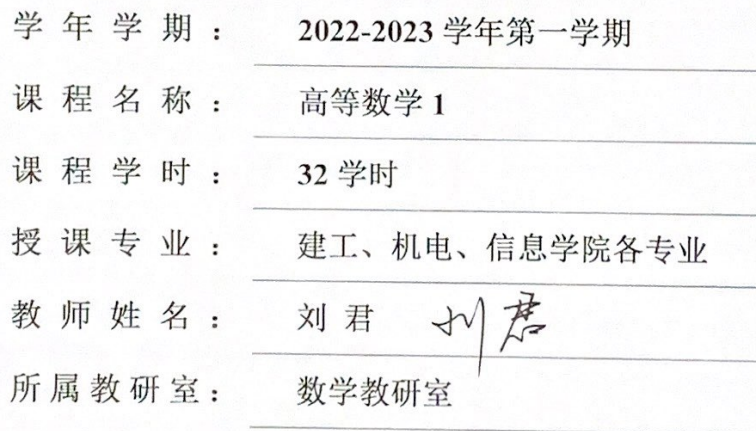 学年学期： 2022-2023 学年第一学期
课程名称： 高等数学 1
课程学时： 32 学时
授课专业： 建工、机电、信息学院各专业
教师姓名： 刘 君 刘君
所属教研室： 数学教研室